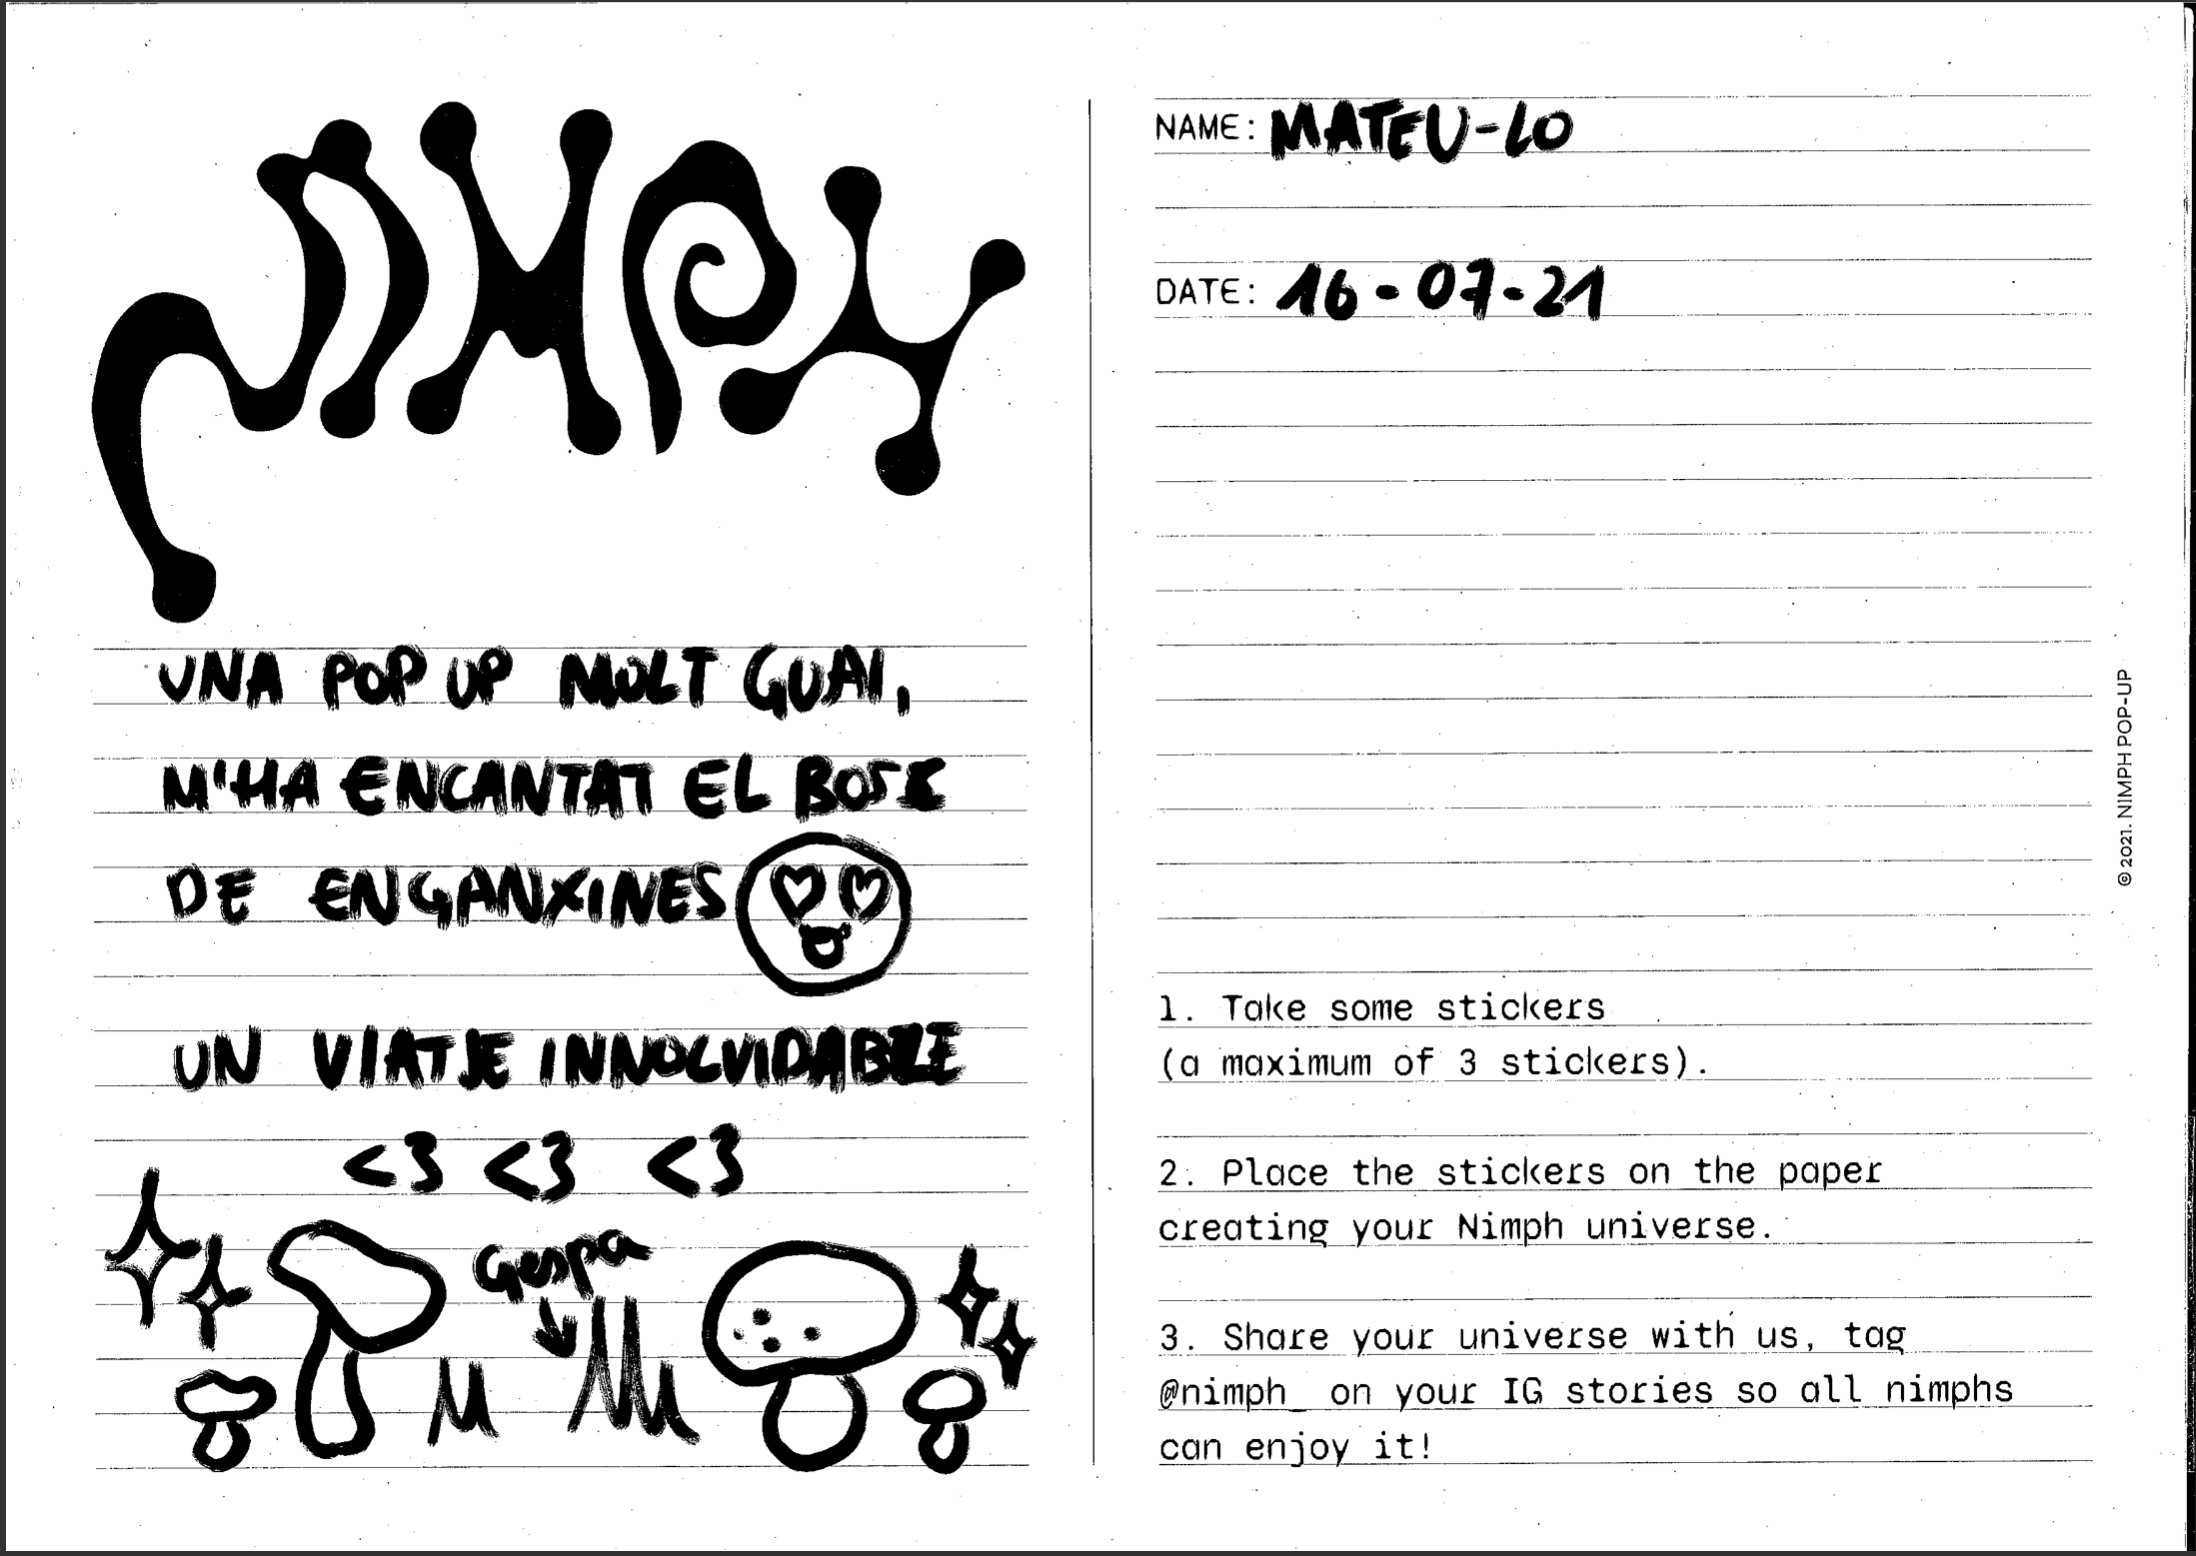 NIMPH
UNA POP UP MOLT GUAI,
M'HA ENCANTAT EL BOSC
DE ENGANXINES
UN VIATJE INNOLVIDABLE
<3 <3 <3
Gespa
NAME: MATEU-LO
DATE: 16-07-21
1. Take some stickers
(a maximum of 3 stickers).
2. Place the stickers on the paper
creating your Nimph universe.
3. Share your universe with us, tag
@nimph_ on your IG stories so all nimphs
can enjoy it!
© 2021. NIMPH POP-UP